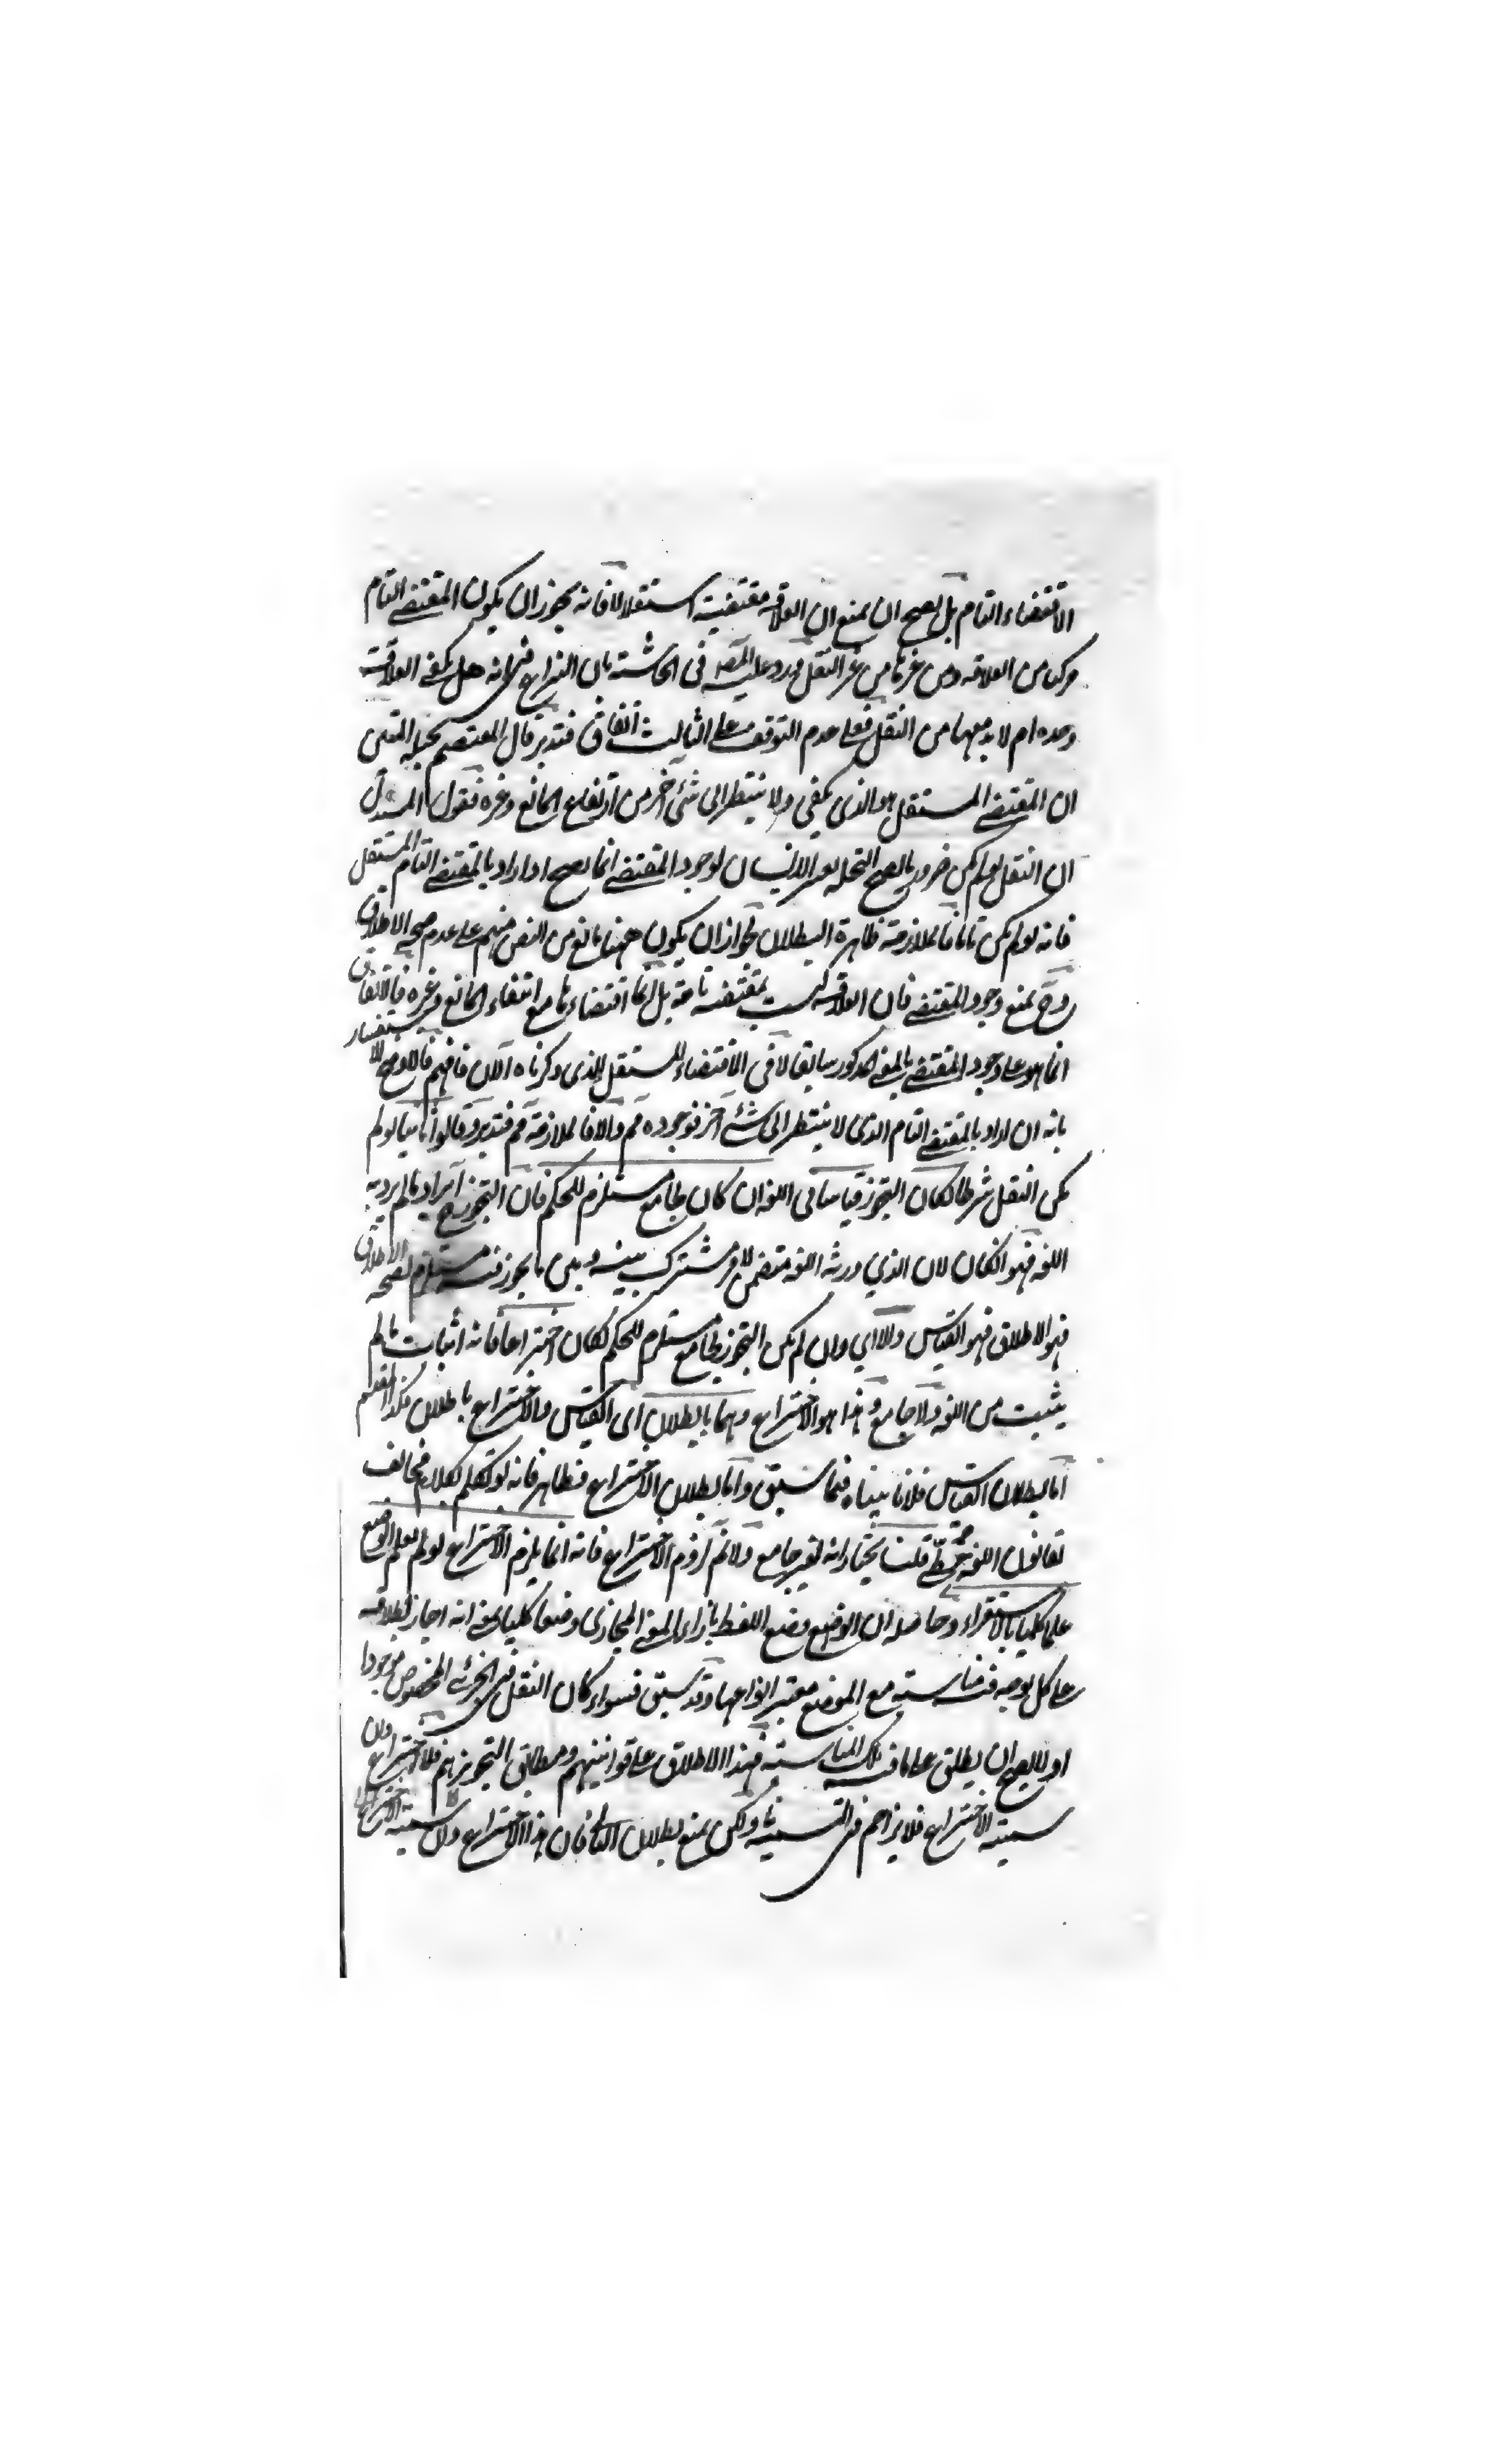 الاقتضاء التام بل يصح ان يمنع ان العلاقة مقتضية استقلالا فانه يجوز ان يكون المقتضي التام
مركبا من العلاقة ومن غيرها من غير النقل ورد عليه المصـ في الحاشية بان النزاع في انه هل يكفي العلاقة
وحده ام لابد معها من النقل فعلى عدم التوقف على الثالث اتفاق فتدبر قال المعتصم بحبله المتين
ان المقتضي المستقل هو الذي يكفي ولا ينتظر الى شئ آخر من ارتفاع المانع وغيره فقول المستدل
ان النقل لو لم يكن ضروريا لصح النخلة لغير الانسان لوجود المقتضي انما يصح اذا اراد بالمقتضي التام المستقل
فانه لو لم يكن تاما فالملازمة ظاهرة البطلان لجواز ان يكون ههنا مانع من النص منهم على عدم صحة الاطلاق
وح يمنع وجود المقتضي فان العلاقة ليست بمقتضية تامة بل انما اقتضاءها مع انتفاء المانع وغيره فالاتفاق
انما هو على وجود المقتضي بالمعنى المذكور سابقا لا في الاقتضاء المستقل الذي ذكرناه الآن فافهم فالاوجه الاستفسار
بانه ان اراد بالمقتضي التام الذي لا ينتظر الى شئ آخر فوجوده مم والا فالملازمة مم فتدبر وقالوا ثانيا لو لم
يكن النقل شرطا لكان التجوز قياسا في اللغة ان كان بجامع مستلزم للحكم فان التجوز ح ايراد ما لم يرد به
اللغة فهو الحاق لان الذي ورد به اللغة متضمن لامر مشترك بينه وبين ما يجوز فيه مستلزم لصحة الاطلاق
فهو الاطلاق فهو القياس والا اي وان لم يكن التجوز بجامع مستلزم للحكم لكان اختراعا فانه اثبات ما لم
يثبت من اللغة ولا جامع وهذا هو الاختراع وهما باطلان اي القياس والاختراع باطلان فكذا المقدم
اما بطلان القياس فلانا بيناه فيما سبق واما بطلان الاختراع فظاهر فانه لو تكلم بكلام مخالف
لقانون اللغة قلنا يختار انه لغير جامع ولا نم لزوم الاختراع فانه انما يلزم الاختراع لو لم يعلم الوضع
علما كليا بالاستقراء وحاصله ان الواضع وضع اللفظ بازاء المعنى المجازي وضعا كليا بمعنى انه اجاز اطلاقه
على كل يوجد فيه مناسبة مع الموضع معتبر انواعها وقد سبق فسواء كان النقل في الجزئي المخصوص موجودا
او لا يصح ان يطلق على ما فيه تلك المناسبة فهذا الاطلاق على قوانينهم ومطابق التجويزهم فلا اختراع وان
سميته الاختراع فلا يزاحم في التسمية ولكن يمنع بطلان التالي فان هذا الاختراع وان سميته